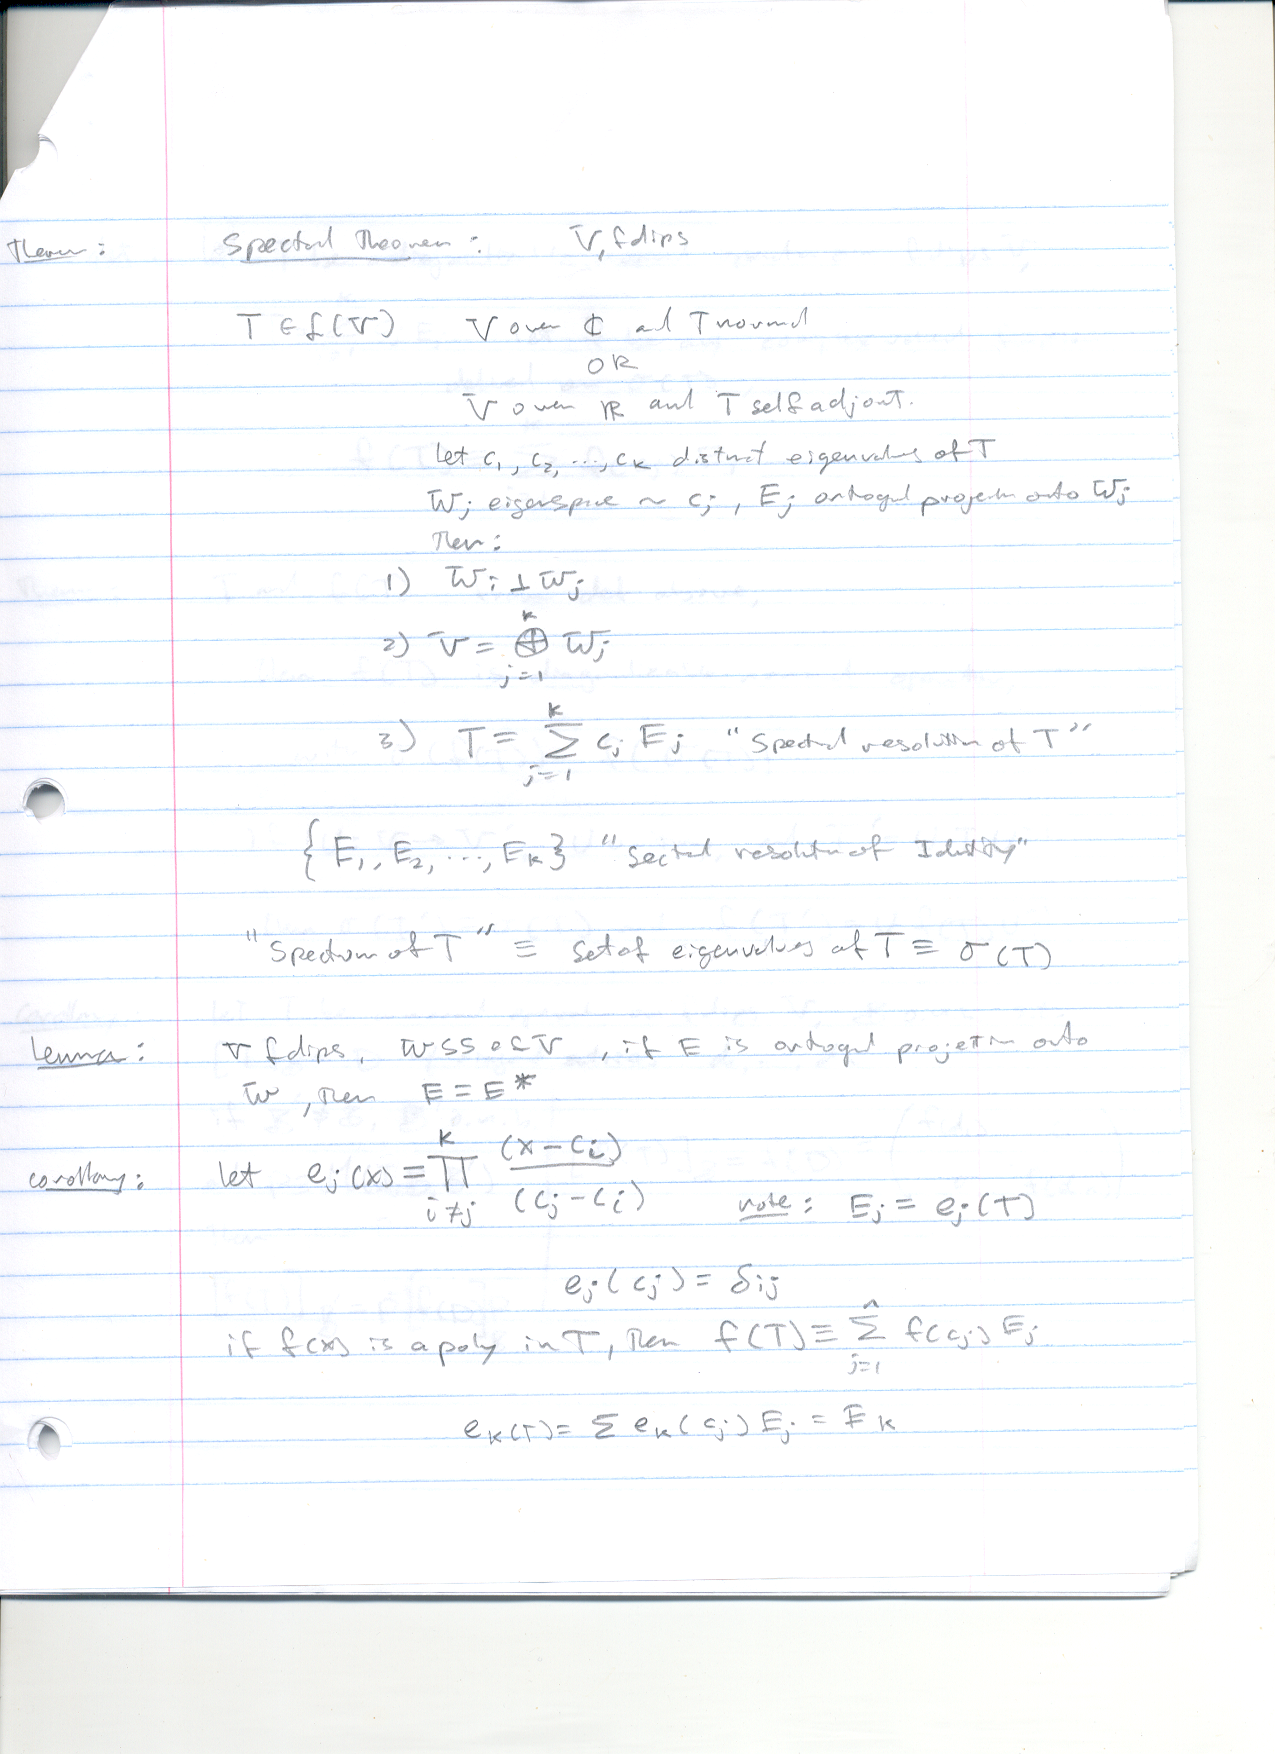 Theorem: Spectral Theorem: V, fdips
T ∈ L(V) V over ℂ and T normal
OR
V over ℝ and T self adjoint.
let c₁, c₂, ..., cₖ distinct eigenvalues of T
Wⱼ eigenspace ~ cⱼ, Eⱼ orthogonal projection onto Wⱼ
Then:
1) Wᵢ ⊥ Wⱼ
2) V = ⊕_{j=1}^{k} Wⱼ
3) T = Σ_{j=1}^{k} cⱼ Eⱼ "Spectral resolution of T"
{E₁, E₂, ..., Eₖ} "Sectral resolution of Identity"
"Spectrum of T" ≡ set of eigenvalues of T ≡ σ(T)
Lemma: V fdips, W SS of V, if E is orthogonal projection onto
W, then E = E*
corollary: let eⱼ(x) = ∏_{i≠j}^{k} (x - cᵢ)/(cⱼ - cᵢ) note: Eⱼ = eⱼ(T)
eⱼ(cⱼ) = δij
if f(x) is a poly in T, then f(T) ≡ Σ_{j=1}^{n} f(cⱼ) Eⱼ
eₖ(T) = Σ eₖ(cⱼ) Eⱼ = Eₖ